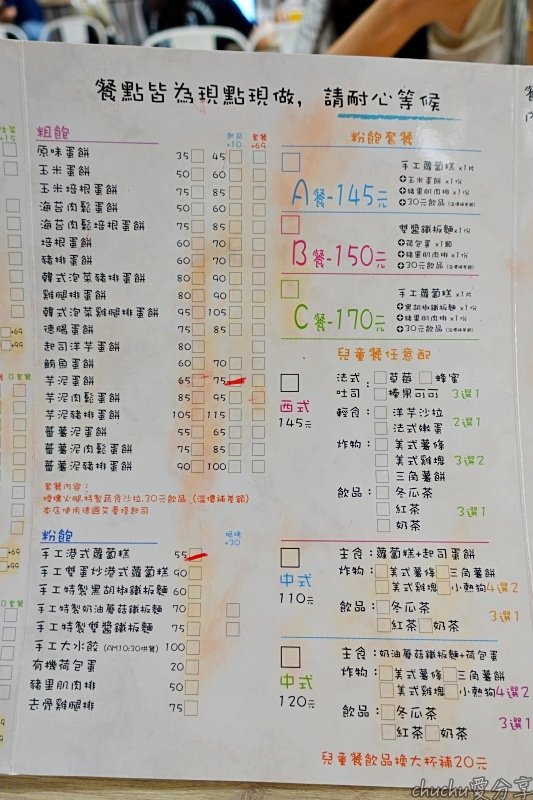 餐點皆為現點現做，請耐心等候
粗飽
起司
+10
套餐
+69
原味蛋餅 35 45
玉米蛋餅 50 60
玉米培根蛋餅 75 85
海苔肉鬆蛋餅 50 60
海苔肉鬆培根蛋餅 75 85
培根蛋餅 60 70
豬排蛋餅 60 70
韓式泡菜豬排蛋餅 80 90
雞腿排蛋餅 80 90
韓式泡菜雞腿排蛋餅 95 105
德腸蛋餅 75 85
起司洋芋蛋餅
鮪魚蛋餅 60 70
芋泥蛋餅 65 75
芋泥肉鬆蛋餅 85 95
芋泥豬排蛋餅 105 115
蕃薯泥蛋餅 55 65
蕃薯泥肉鬆蛋餅 75 85
蕃薯泥豬排蛋餅 90 100
套餐內容：
煙燻火腿.特製蔬食沙拉.30元飲品 (溢價補差額)
本店使用德國艾曼塔起司
粉飽
+30
手工港式蘿蔔糕 55
手工雙蛋炒港式蘿蔔糕 90
手工特製黑胡椒鐵板麵 60
手工特製奶油蘑菇鐵板麵 70
手工特製雙醬鐵板麵 75
手工大水餃 (AM10:30供餐) 100
有機荷包蛋 20
豬里肌肉排 50
去骨雞腿排 75
粉飽套餐
A餐-145元
手工蘿蔔糕x1片
玉米蛋餅x1份
豬里肌肉排x1份
30元飲品 (溢價補差額)
B餐-150元
雙醬鐵板麵x1份
荷包蛋x1顆
豬里肌肉排x1份
30元飲品 (溢價補差額)
C餐-170元
手工蘿蔔糕x1片
黑胡椒鐵板麵x1份
豬里肌肉排x1份
30元飲品 (溢價補差額)
兒童餐任意配
西式
145元
法式：草莓 蜂蜜
吐司 榛果可可 3選1
輕食：洋芋沙拉
法式嫩蛋 2選1
炸物：美式薯條
美式雞塊 3選2
三角薯餅
飲品：冬瓜茶
紅茶 3選1
奶茶
中式
110元
主食：蘿蔔糕+起司蛋餅
炸物：美式薯條 三角薯餅
美式雞塊 小熱狗 4選2
飲品：冬瓜茶
紅茶 奶茶 3選1
中式
120元
主食：奶油蘑菇鐵板麵+荷包蛋
炸物：美式薯條 三角薯餅
美式雞塊 小熱狗 4選2
飲品：冬瓜茶
紅茶 奶茶 3選1
兒童餐飲品換大杯補20元
chuchu愛分享